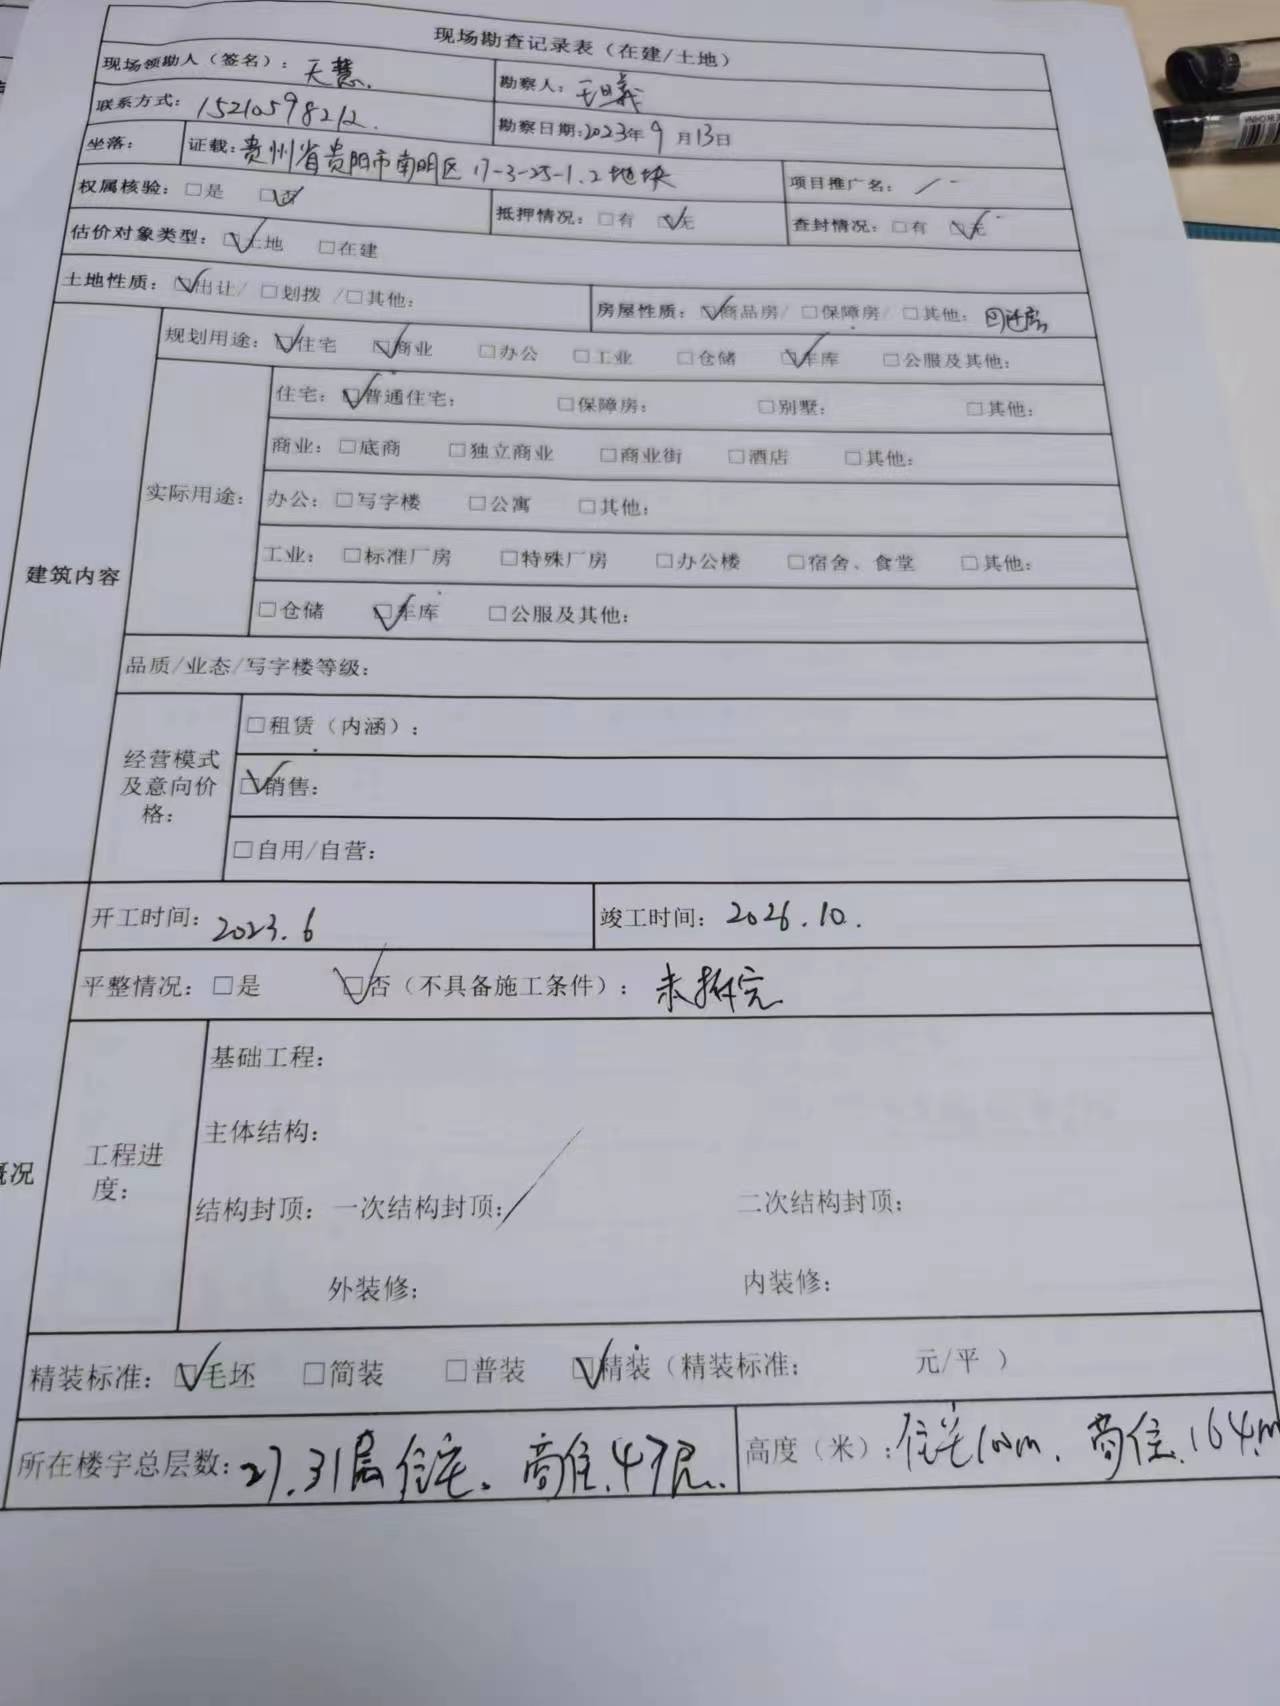 现场勘查记录表（在建/土地）
现场领勘人（签名）：天慧. 勘察人：王曦
联系方式：15210598212. 勘察日期:2023年9月13日
坐落： 证载：贵州省贵阳市南明区17-3-25-1.2地块 项目推广名：/
权属核验：□是 ☑否 抵押情况：□有 ☑无 查封情况：□有 ☑无
估价对象类型：☑土地 □在建
土地性质：☑出让/ □划拨 /□其他： 房屋性质：☑商品房/ □保障房/ □其他：回迁房
规划用途：☑住宅 ☑商业 □办公 □工业 □仓储 ☑车库 □公服及其他：
住宅：☑普通住宅： □保障房： □别墅： □其他：
商业：□底商 □独立商业 □商业街 □酒店 □其他：
实际用途： 办公：□写字楼 □公寓 □其他：
工业： □标准厂房 □特殊厂房 □办公楼 □宿舍、食堂 □其他：
建筑内容
□仓储 ☑车库 □公服及其他：
品质/业态/写字楼等级：
□租赁（内涵）：
经营模式
及意向价
格：
☑销售：
□自用/自营：
开工时间：2023.6 竣工时间：2026.10.
平整情况：□是 ☑否（不具备施工条件）：未拆完
基础工程：
主体结构：
概况
工程进
度：
结构封顶：一次结构封顶：/ 二次结构封顶：
外装修： 内装修：
精装标准：☑毛坯 □简装 □普装 ☑精装（精装标准： 元/平 ）
所在楼宇总层数：27.31层住宅、商住.47层. 高度（米）：住宅100m. 商住.164m